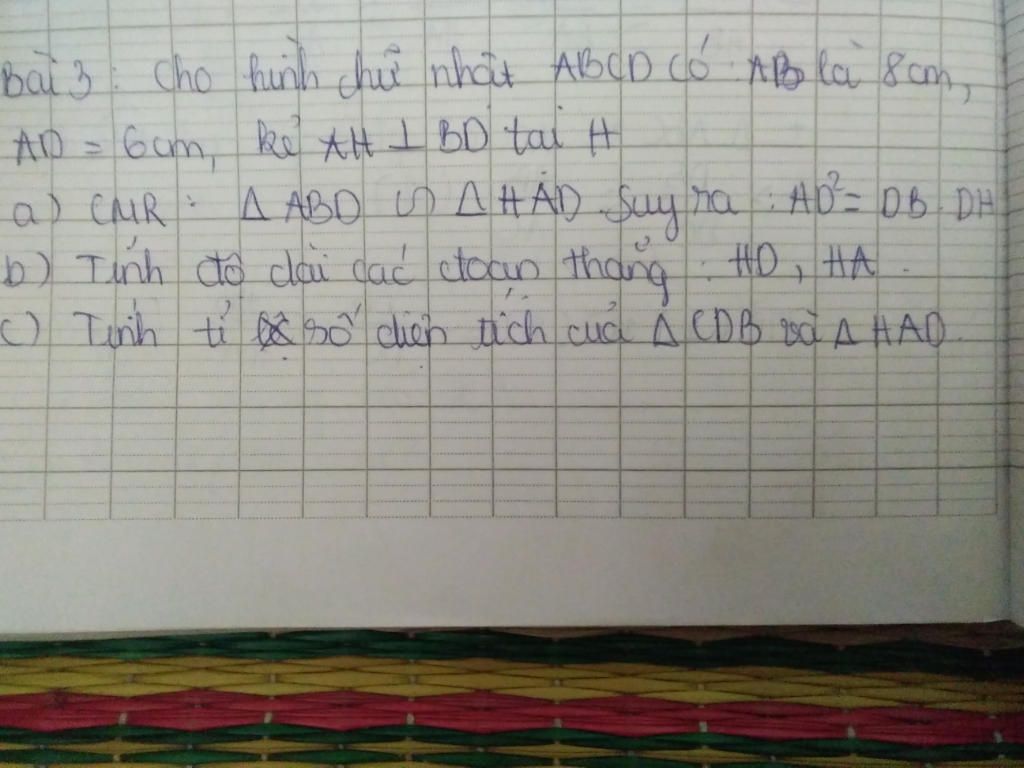 Bài 3: Cho hình chữ nhật ABCD có AB là 8cm,
AD = 6cm, kẻ AH ⊥ BD tại H
a) CMR: Δ ABD ∽ Δ HAD. Suy ra: AD² = DB. DH
b) Tính độ dài các đoạn thẳng: HD, HA.
c) Tính tỉ số diện tích của Δ CDB và Δ HAD.